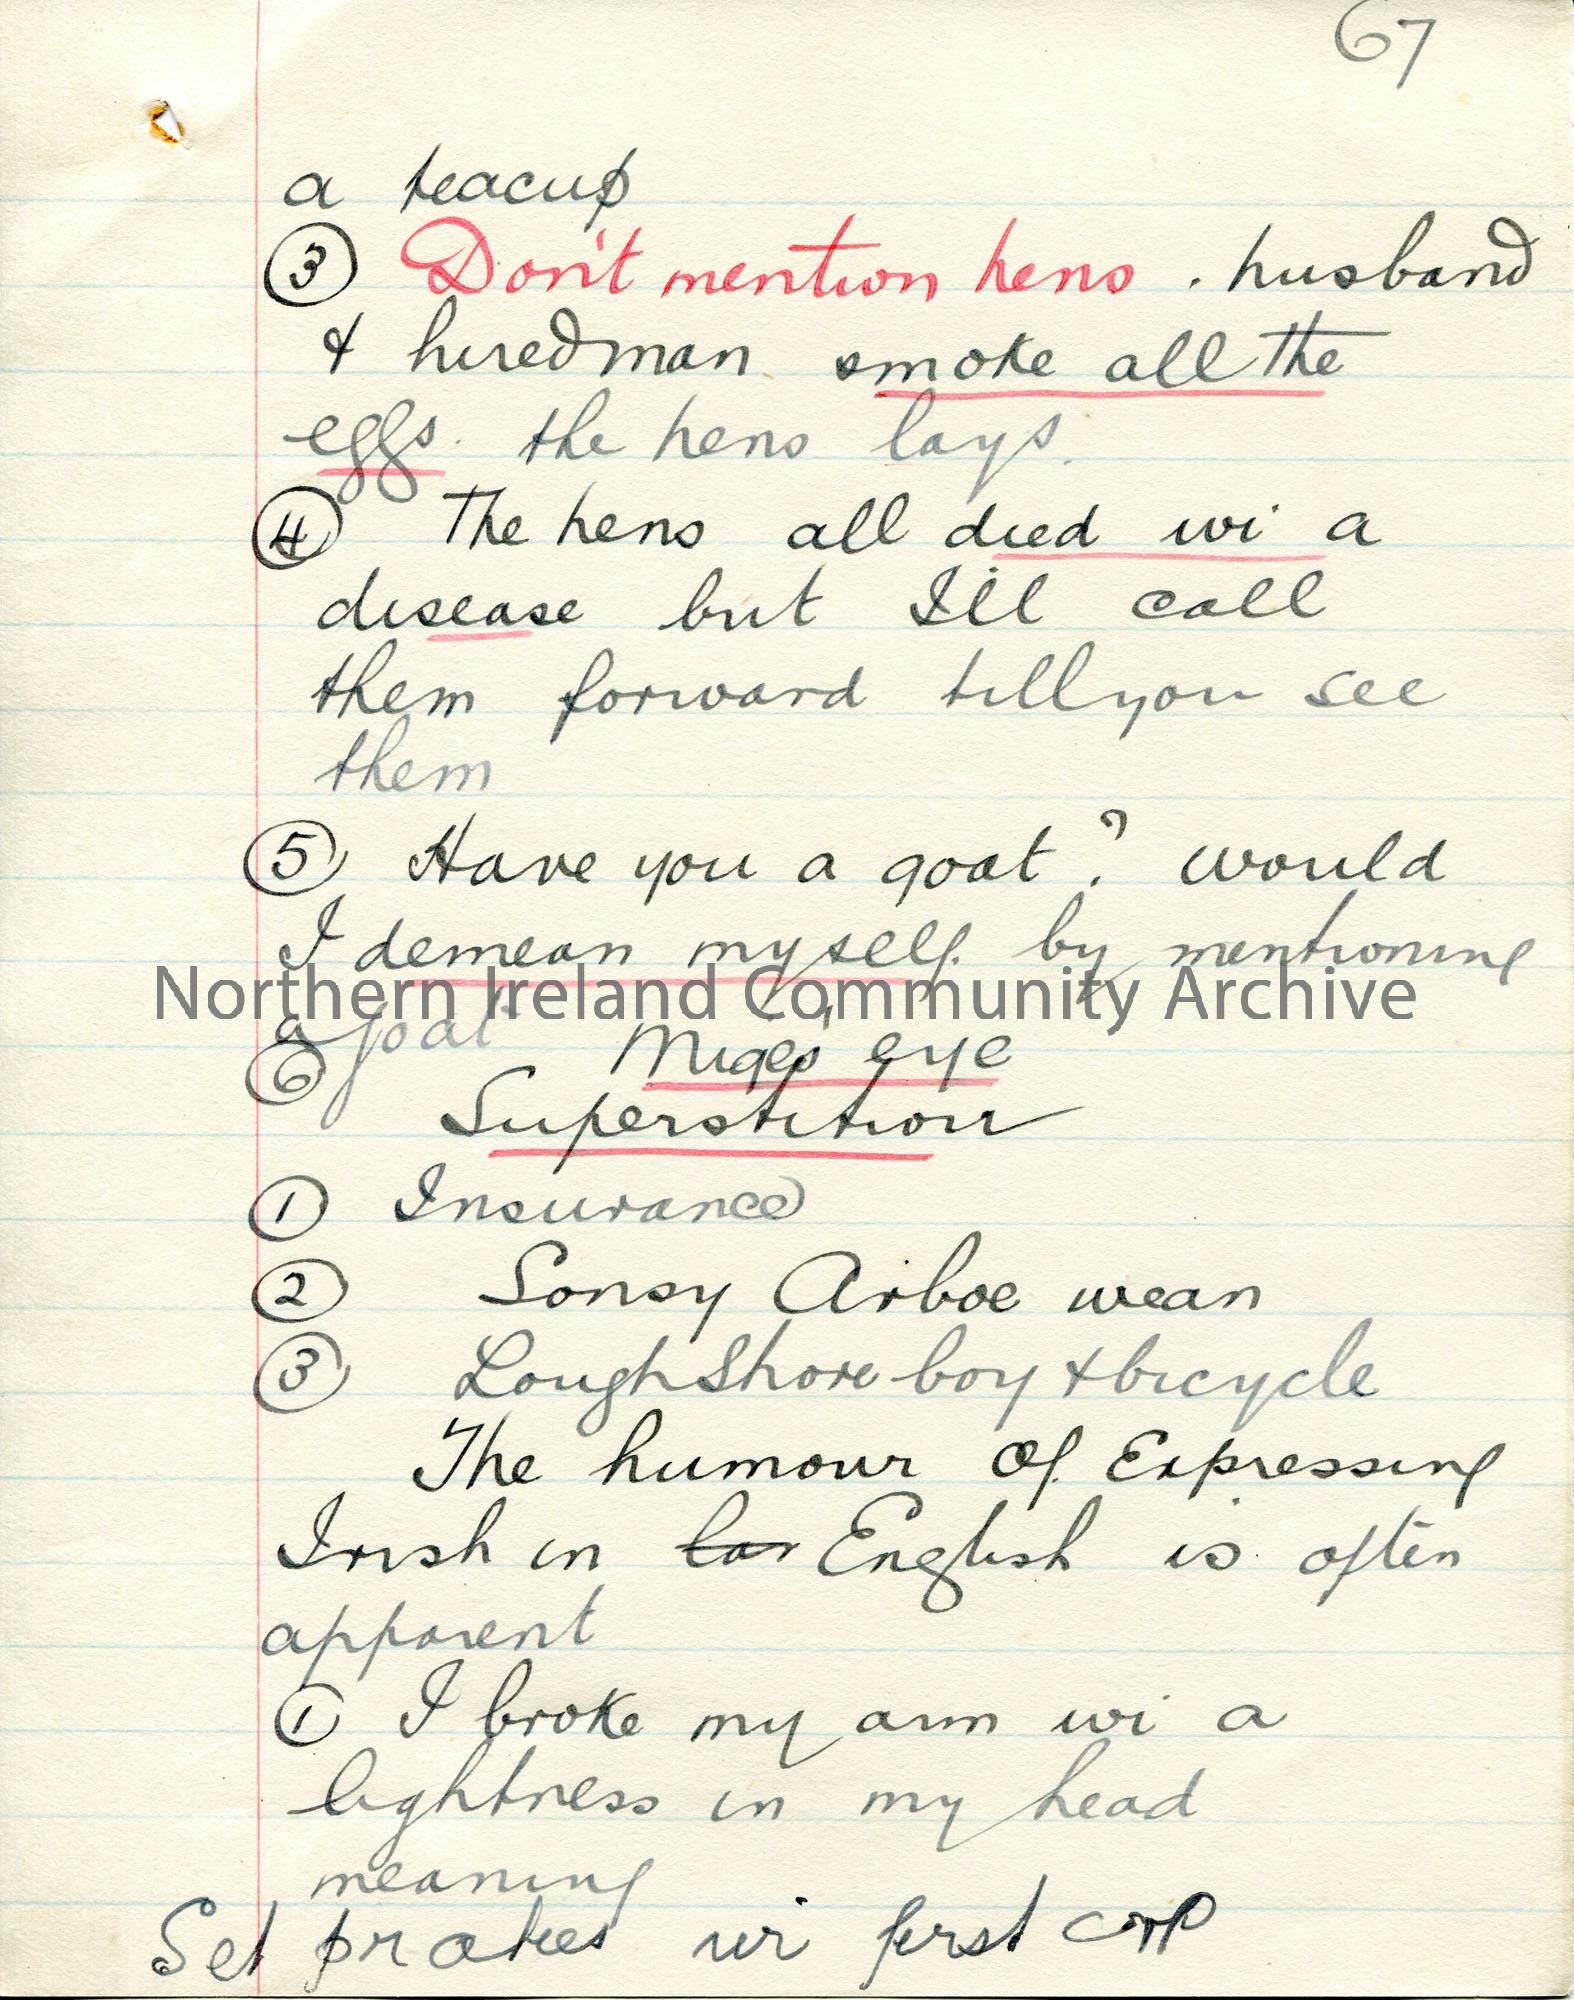 67
a teacup
③ Don't mention hens . husband
& hiredman smoke all the
eggs. the hens lays.
④ The hens all died wi a
disease but I'll call
them forward till you see
them
⑤ Have you a goat? would
I demean myself by mentioning
a goat
Northern Ireland Community Archive
⑥ eye
Superstition
① Insurance
② Sonsy Arboe wean
③ Loughshore boy & bicycle
The humour of Expressing
Irish in English is often
apparent
① I broke my arm wi a
lightness in my head
meaning
Set praties wi first